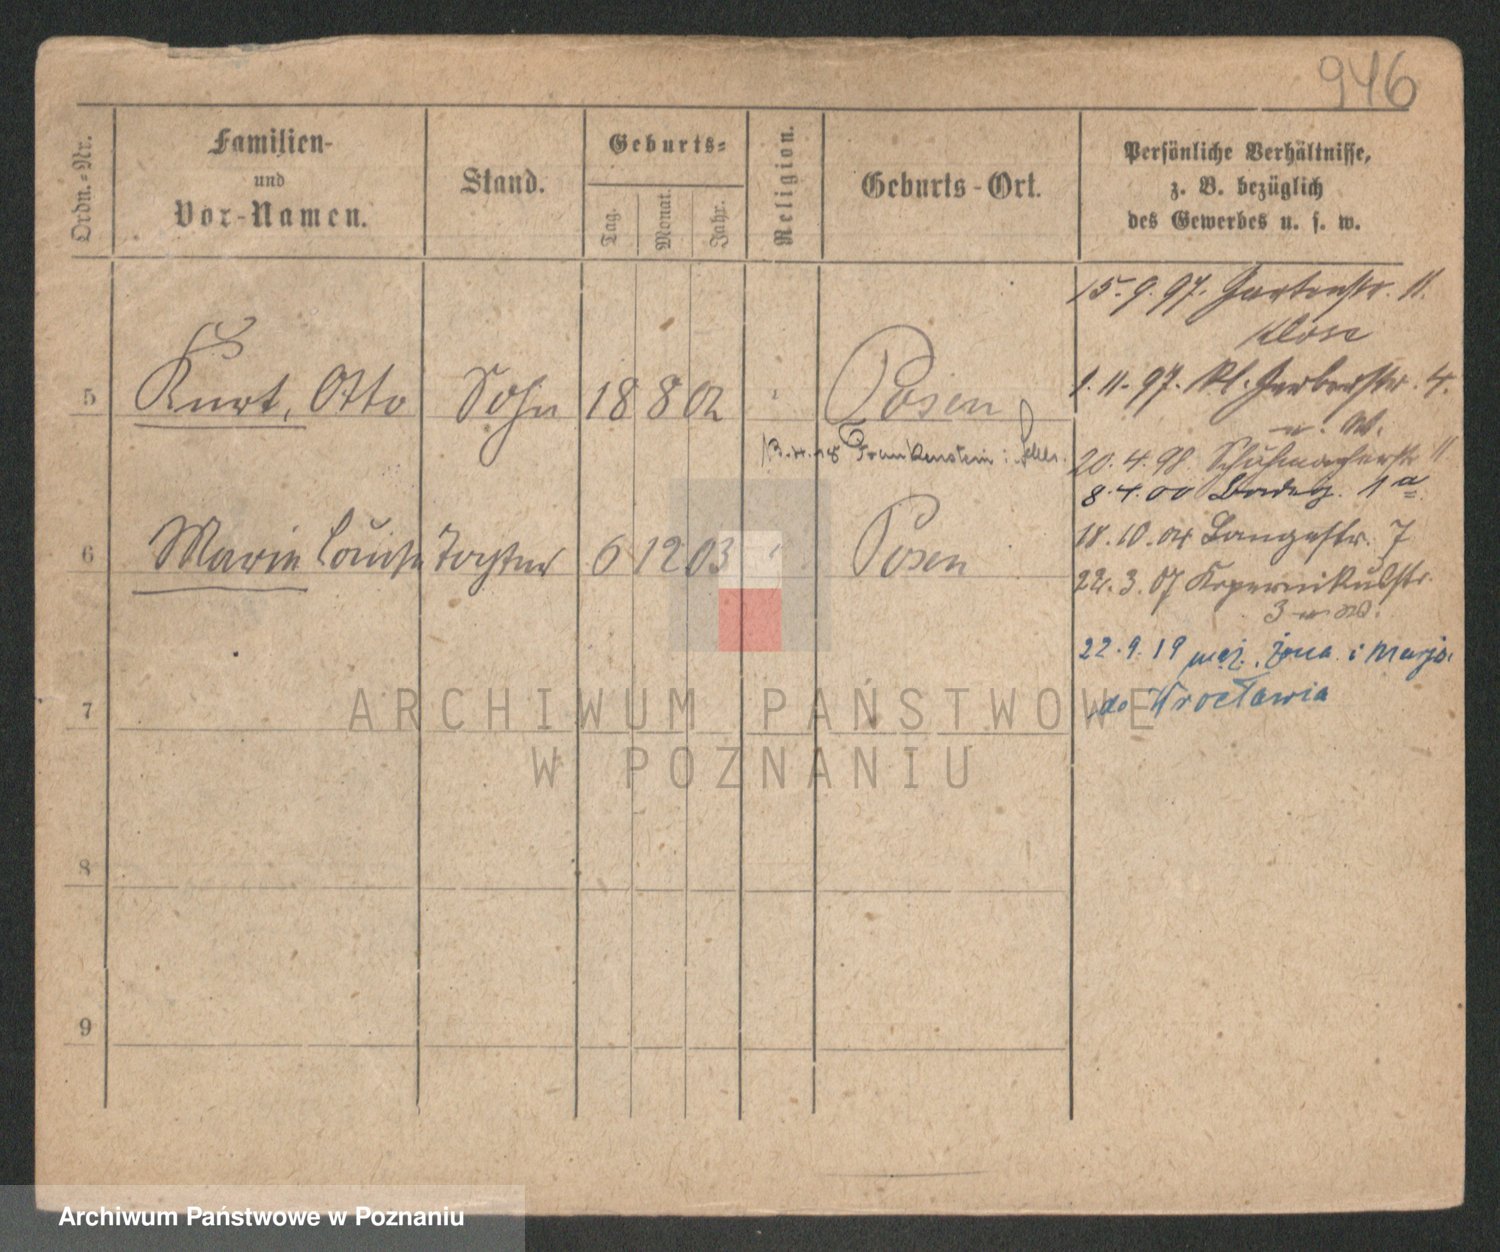 946
Ordn.-Nr.
Familien-
und
Vor-Namen.
Stand.
Geburts-
Tag.
Monat.
Jahr.
Religion.
Geburts-Ort.
Persönliche Verhältnisse,
z. B. bezüglich
des Gewerbes u. s. w.
15.9.97. Gartenstr. 11.
5 Kurt, Otto Sohn 18 8 02 Posen
1.11.97. Kl. Gerberstr. 4.
Frankenstein i. Schles.
20.4.98. Schuhmacherstr. 11
8.4.00 1a
6 Marie Louise Tochter 6 12 03 Posen
18.10. Langestr. 7
22.3.07 Kopernikusstr.
3
22.9.19 męż, żona i Marja
do Wrocławia
7
8
9
ARCHIWUM PAŃSTWOWE
W POZNANIU
Archiwum Państwowe w Poznaniu